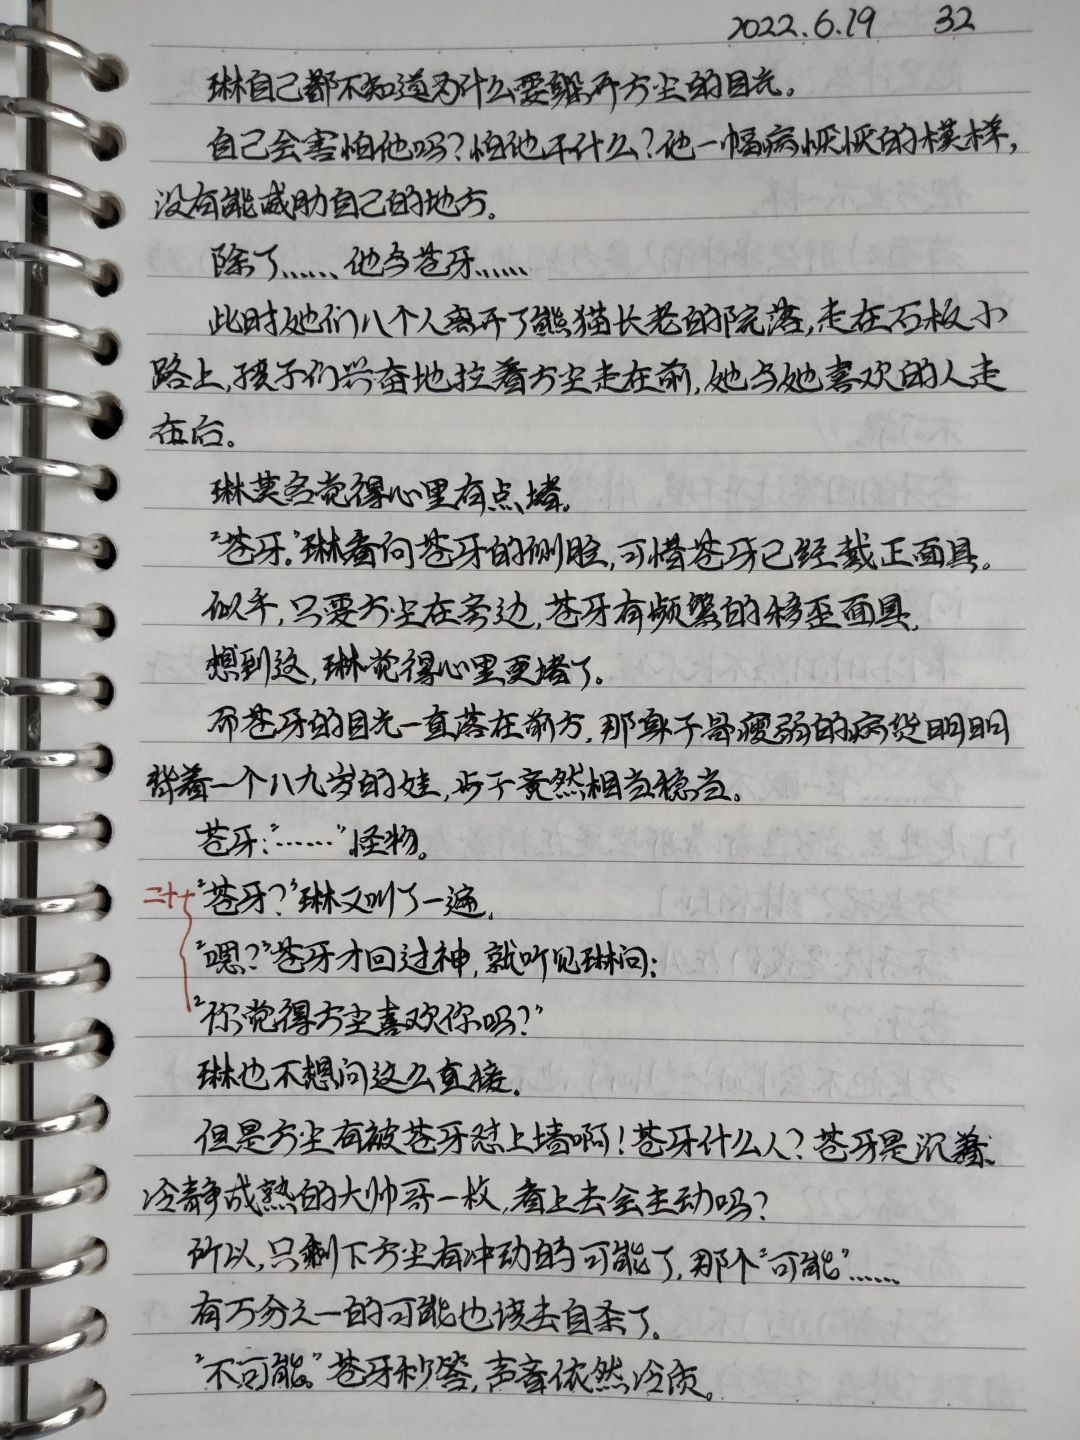 2022.6.19 32
琳自己都不知道为什么要躲开方尘的目光。
自己会害怕他吗?怕他干什么?他一幅病恹恹的模样,
没有能威胁自己的地方。
除了……他与苍牙……
此时她们八个人离开了熊猫长老的院落,走在石板小
路上,孩子们兴奋地拉着方尘走在前,她与她喜欢的人走
在后。
琳莫名觉得心里有点堵。
“苍牙。”琳看向苍牙的侧脸,可惜苍牙已经戴正面具。
似乎,只要方尘在旁边,苍牙有频繁的移歪面具,
想到这,琳觉得心里更堵了。
而苍牙的目光一直落在前方,那身子骨瘦弱的病货明明
背着一个八九岁的娃,步子竟然相当稳当。
苍牙:“……”怪物。
二十
“苍牙?”琳又叫了一遍,
“嗯?”苍牙才回过神,就听见琳问:
“你觉得方尘喜欢你吗?”
琳也不想问这么直接,
但是方尘有被苍牙怼上墙啊!苍牙什么人?苍牙是沉着、
冷静成熟的大帅哥一枚,看上去会主动吗?
所以,只剩下方尘有冲动的可能了,那个“可能”……
有万分之一的可能也该去自杀了。
“不可能。”苍牙秒答,声音依然冷质。